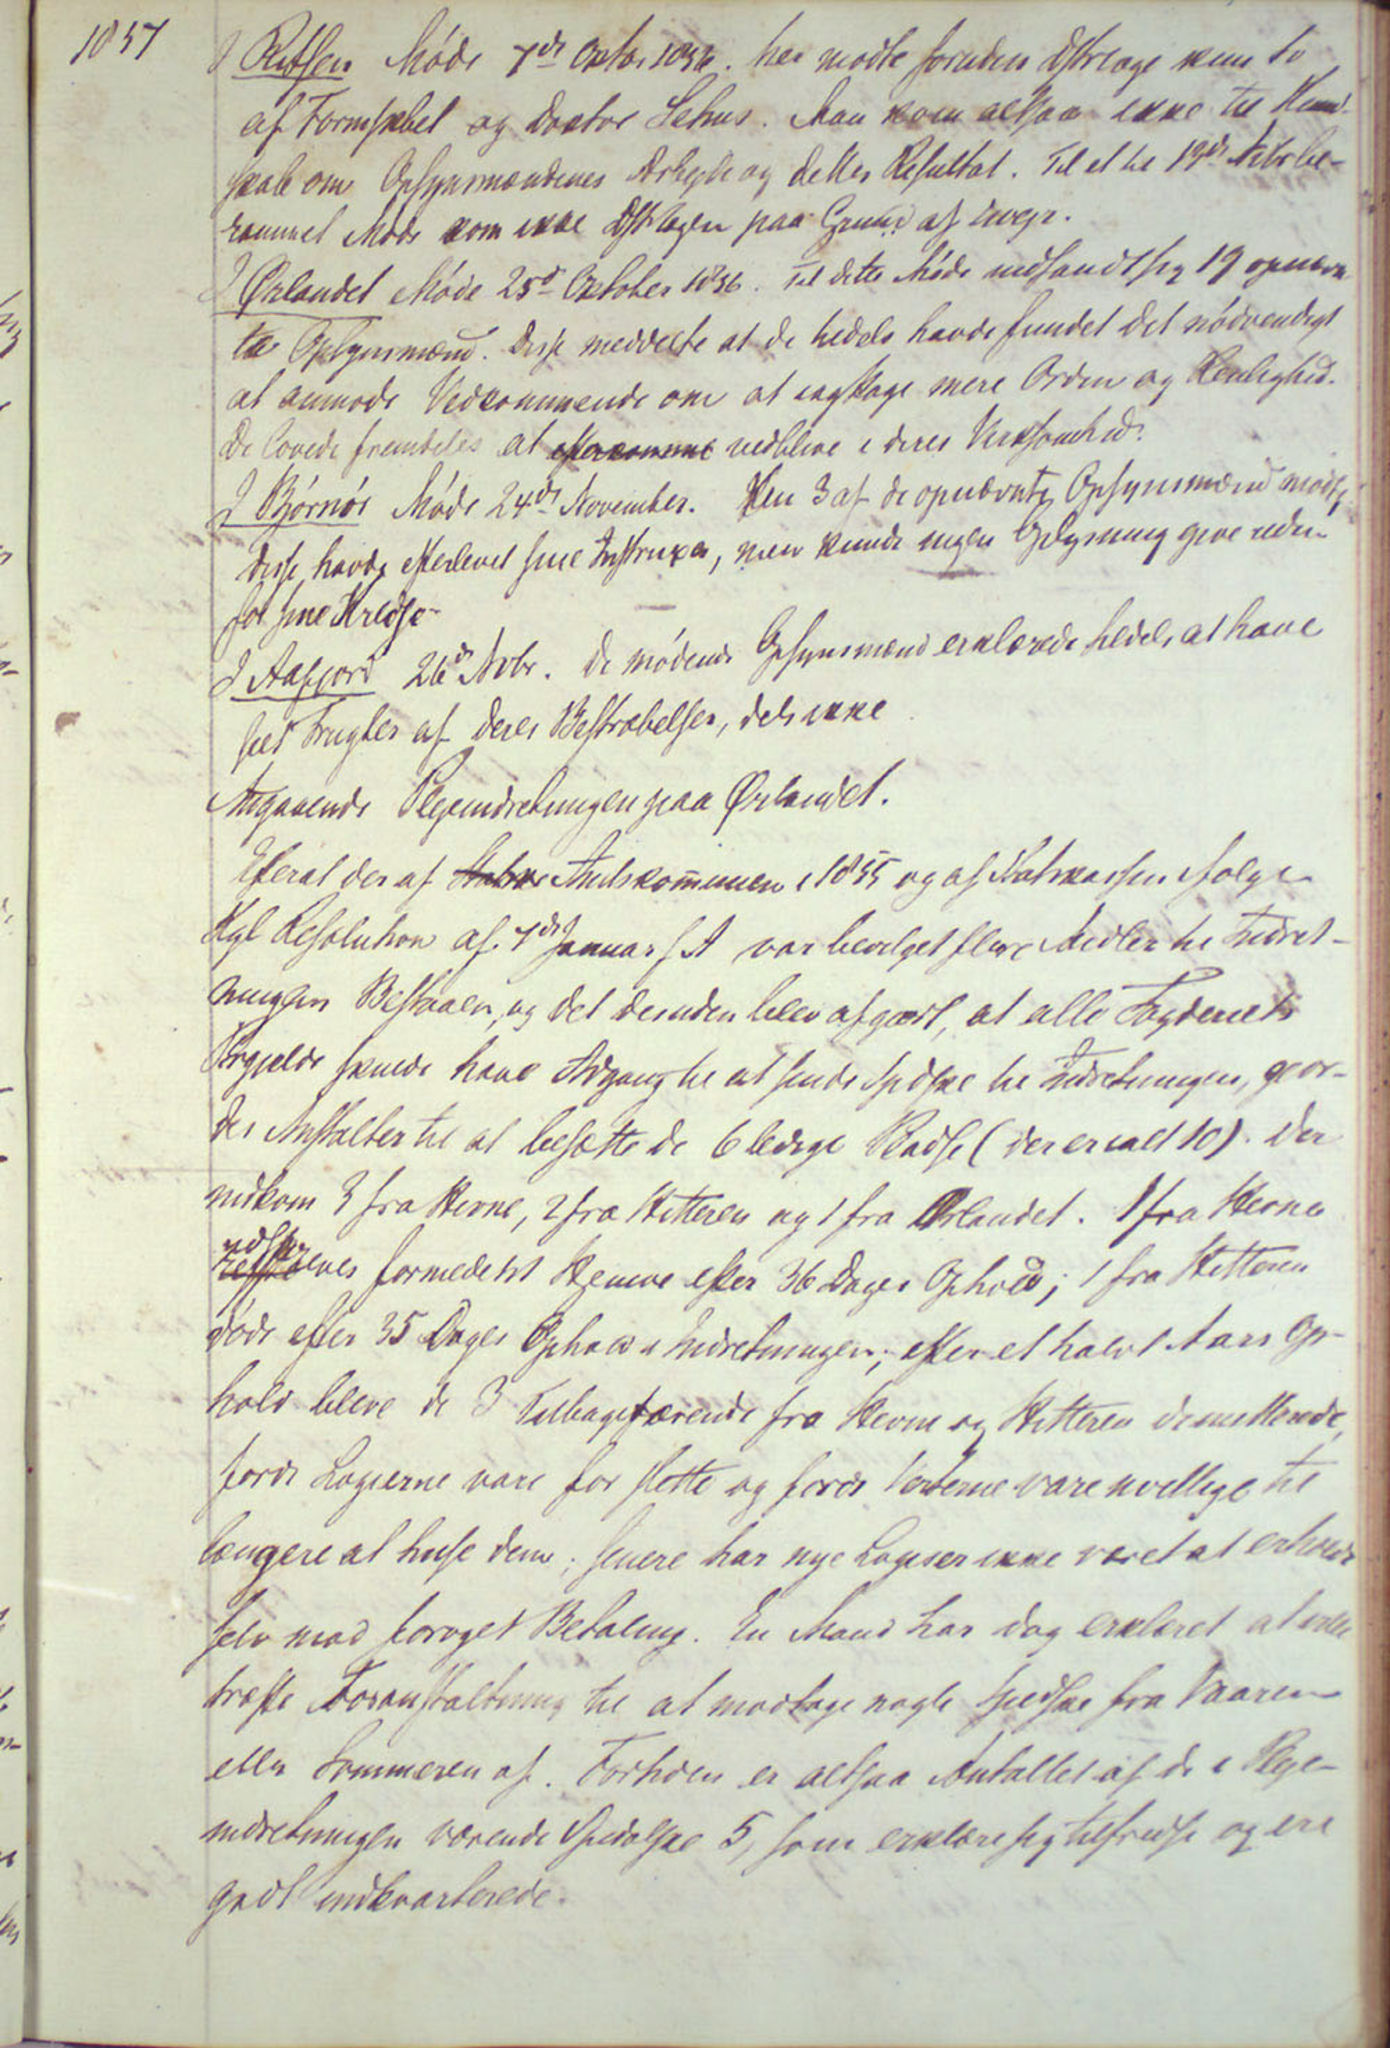 1857
I Rissen Møde 7de Oktbr 1856. her mødte foruden Dstrlæge kun to
af Formskabet og Doctor Sehus. Man kom altsaa ikke til Kund-
skab om Opsynsmændenes Arbejde og dettes Resultat. Til et til 19de Novbr be-
rammet Møde kom ikke Dstrlægen paa Grund af uvejr.
I Ørlandet Møde 25de Oktober 1856. Til dette Møde indfandt sig 19 opnævn-
te Opsynsmænd. Disse meddelte at de tildels havde fundet det nødvendigt
at anmode Vedkommende om at iagttage mere Orden og Renlighed.
De lovede fremdeles at efterkomme vedblive i deres Virksomhed.
I Bjørnør Møde 24de November. Kun 3 af de opnævnte Opsynsmænd mødte,
disse havde efterlevet sine Instruxer, men kunde ingen Oplysning give uden
for sine Kredse
I Aafjord 26de Novbr. De mødende Opsynsmænd erklærede tildels at have
seet Frugter af deres Bestræbelser, dels ikke
Angaaende Plejeindretningen paa Ørlandet.
Efterat der af Amtskommunen i 1855 og af Statskassen ifølge
Kgl Resolution af 7de Januar f A var bevilget flere Midler til Indret-
ningens Bestaaen, og det desuden blev afgjort, at alle Fogderiets
Prgjelde skulde have Adgang til at sende Spedske til Indretningen, gjor-
des Anstalter til at besætte de 6 ledige Pladse (der er ialt 10). Der
indkom 3 fra Hevne, 2 fra Hitteren og 1 fra Ørlandet. 1 fra Hevne
udskreves formedelst Hjemve efter 36 Dages Ophold; 1 fra Hitteren
døde efter 35 Dages Ophold i Indretningen; efter et halvt Aars Op-
hold bleve de 3 Tilbageværende fra Hevne og Hitteren demitterede,
fordi Logierne vare for slette og fordi Værterne vare uvillige til
længere at huse dem; senere har nye Logiser ikke været at erholde
selv mod forøget Betaling. En Mand har dog erklæret at ville
træffe Foranstaltning til at modtage nogle Spedske fra Vaaren
eller Sommeren af. Forhden er altsaa Antallet af de i Pleje-
indretningen værende Spedalske 5, som erklære sig tilfredse og ere
godt indkvarterede.